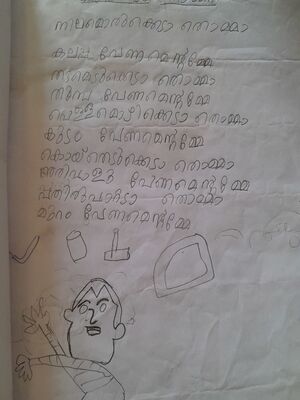 നിലമൊരുക്കെടാ തൊമ്മാ
കലപ്പ വേണമെന്റമ്മേ
നടമെടുക്കെടാ തൊമ്മാ
തുമ്പ വേണമെന്റമ്മേ
വെള്ളമൊഴിക്കെടാ തൊമ്മാ
കുടം വേണമെന്റമ്മേ
കൊയ്തെടുക്കെടാ തൊമ്മാ
വേണമെന്റമ്മേ
തൊമ്മാ
മുറം വേണമെന്റമ്മേ